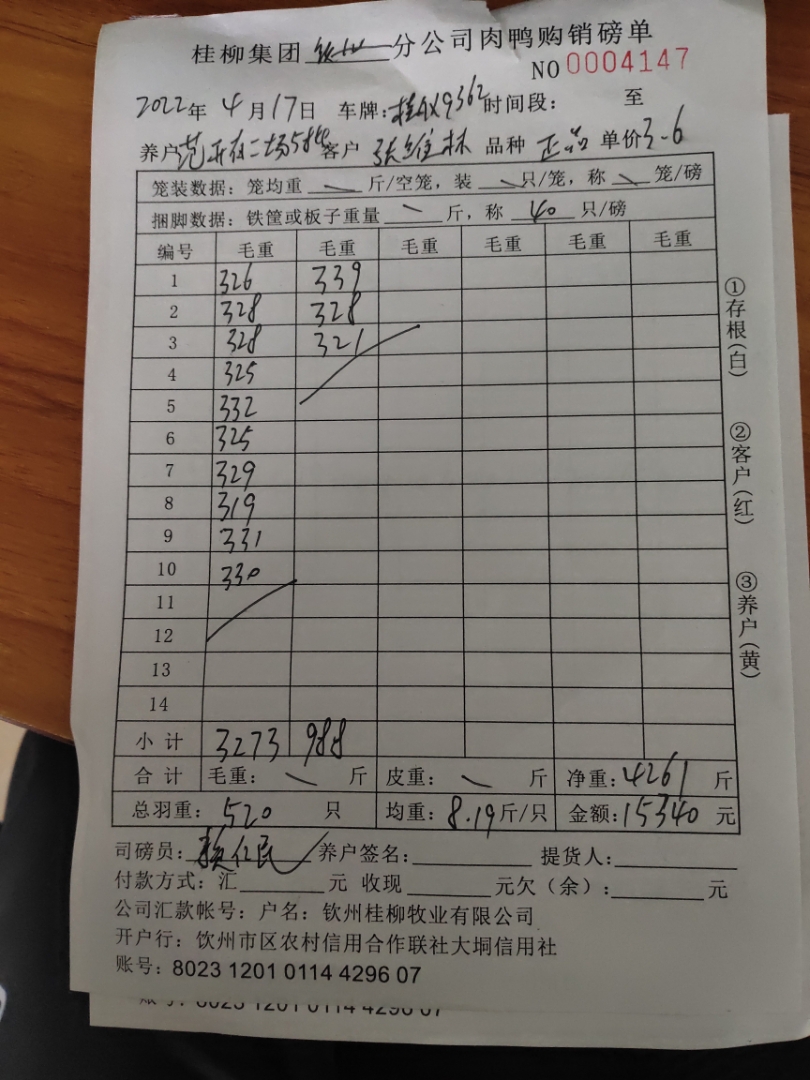 桂柳集团 钦州 分公司肉鸭购销磅单
NO 0004147
2022年 4月17日 车牌: 9362 时间段: 至
养户 二场 客户 张维林 品种 正品 单价3.6
笼装数据: 笼均重 斤/空笼, 装 只/笼, 称 笼/磅
捆脚数据: 铁筐或板子重量 斤, 称 40 只/磅
编号 毛重 毛重 毛重 毛重 毛重 毛重
1 326 339
2 328 328
3 328 321
4 325
5 332
6 325
7 329
8 319
9 331
10 330
11
12
13
14
小计 3273 988
合计 毛重: 斤 皮重: 斤 净重: 4261 斤
总羽重: 520 只 均重: 8.19斤/只 金额: 15340 元
司磅员: 养户签名: 提货人:
付款方式: 汇 元 收现 元欠(余): 元
公司汇款帐号: 户名: 钦州桂柳牧业有限公司
开户行: 钦州市区农村信用合作联社大垌信用社
账号: 8023 1201 0114 4296 07
账号: 8023 1201 0114 4296 07
①存根(白)
②客户(红)
③养户(黄)